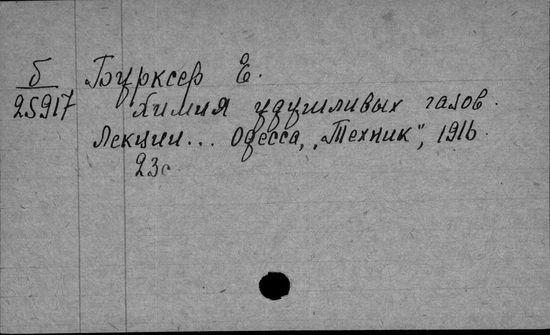 б
25917
Бурксер Е.
Химия удушливых газов.
Лекции... Одесса, „Техник", 1916.
23с